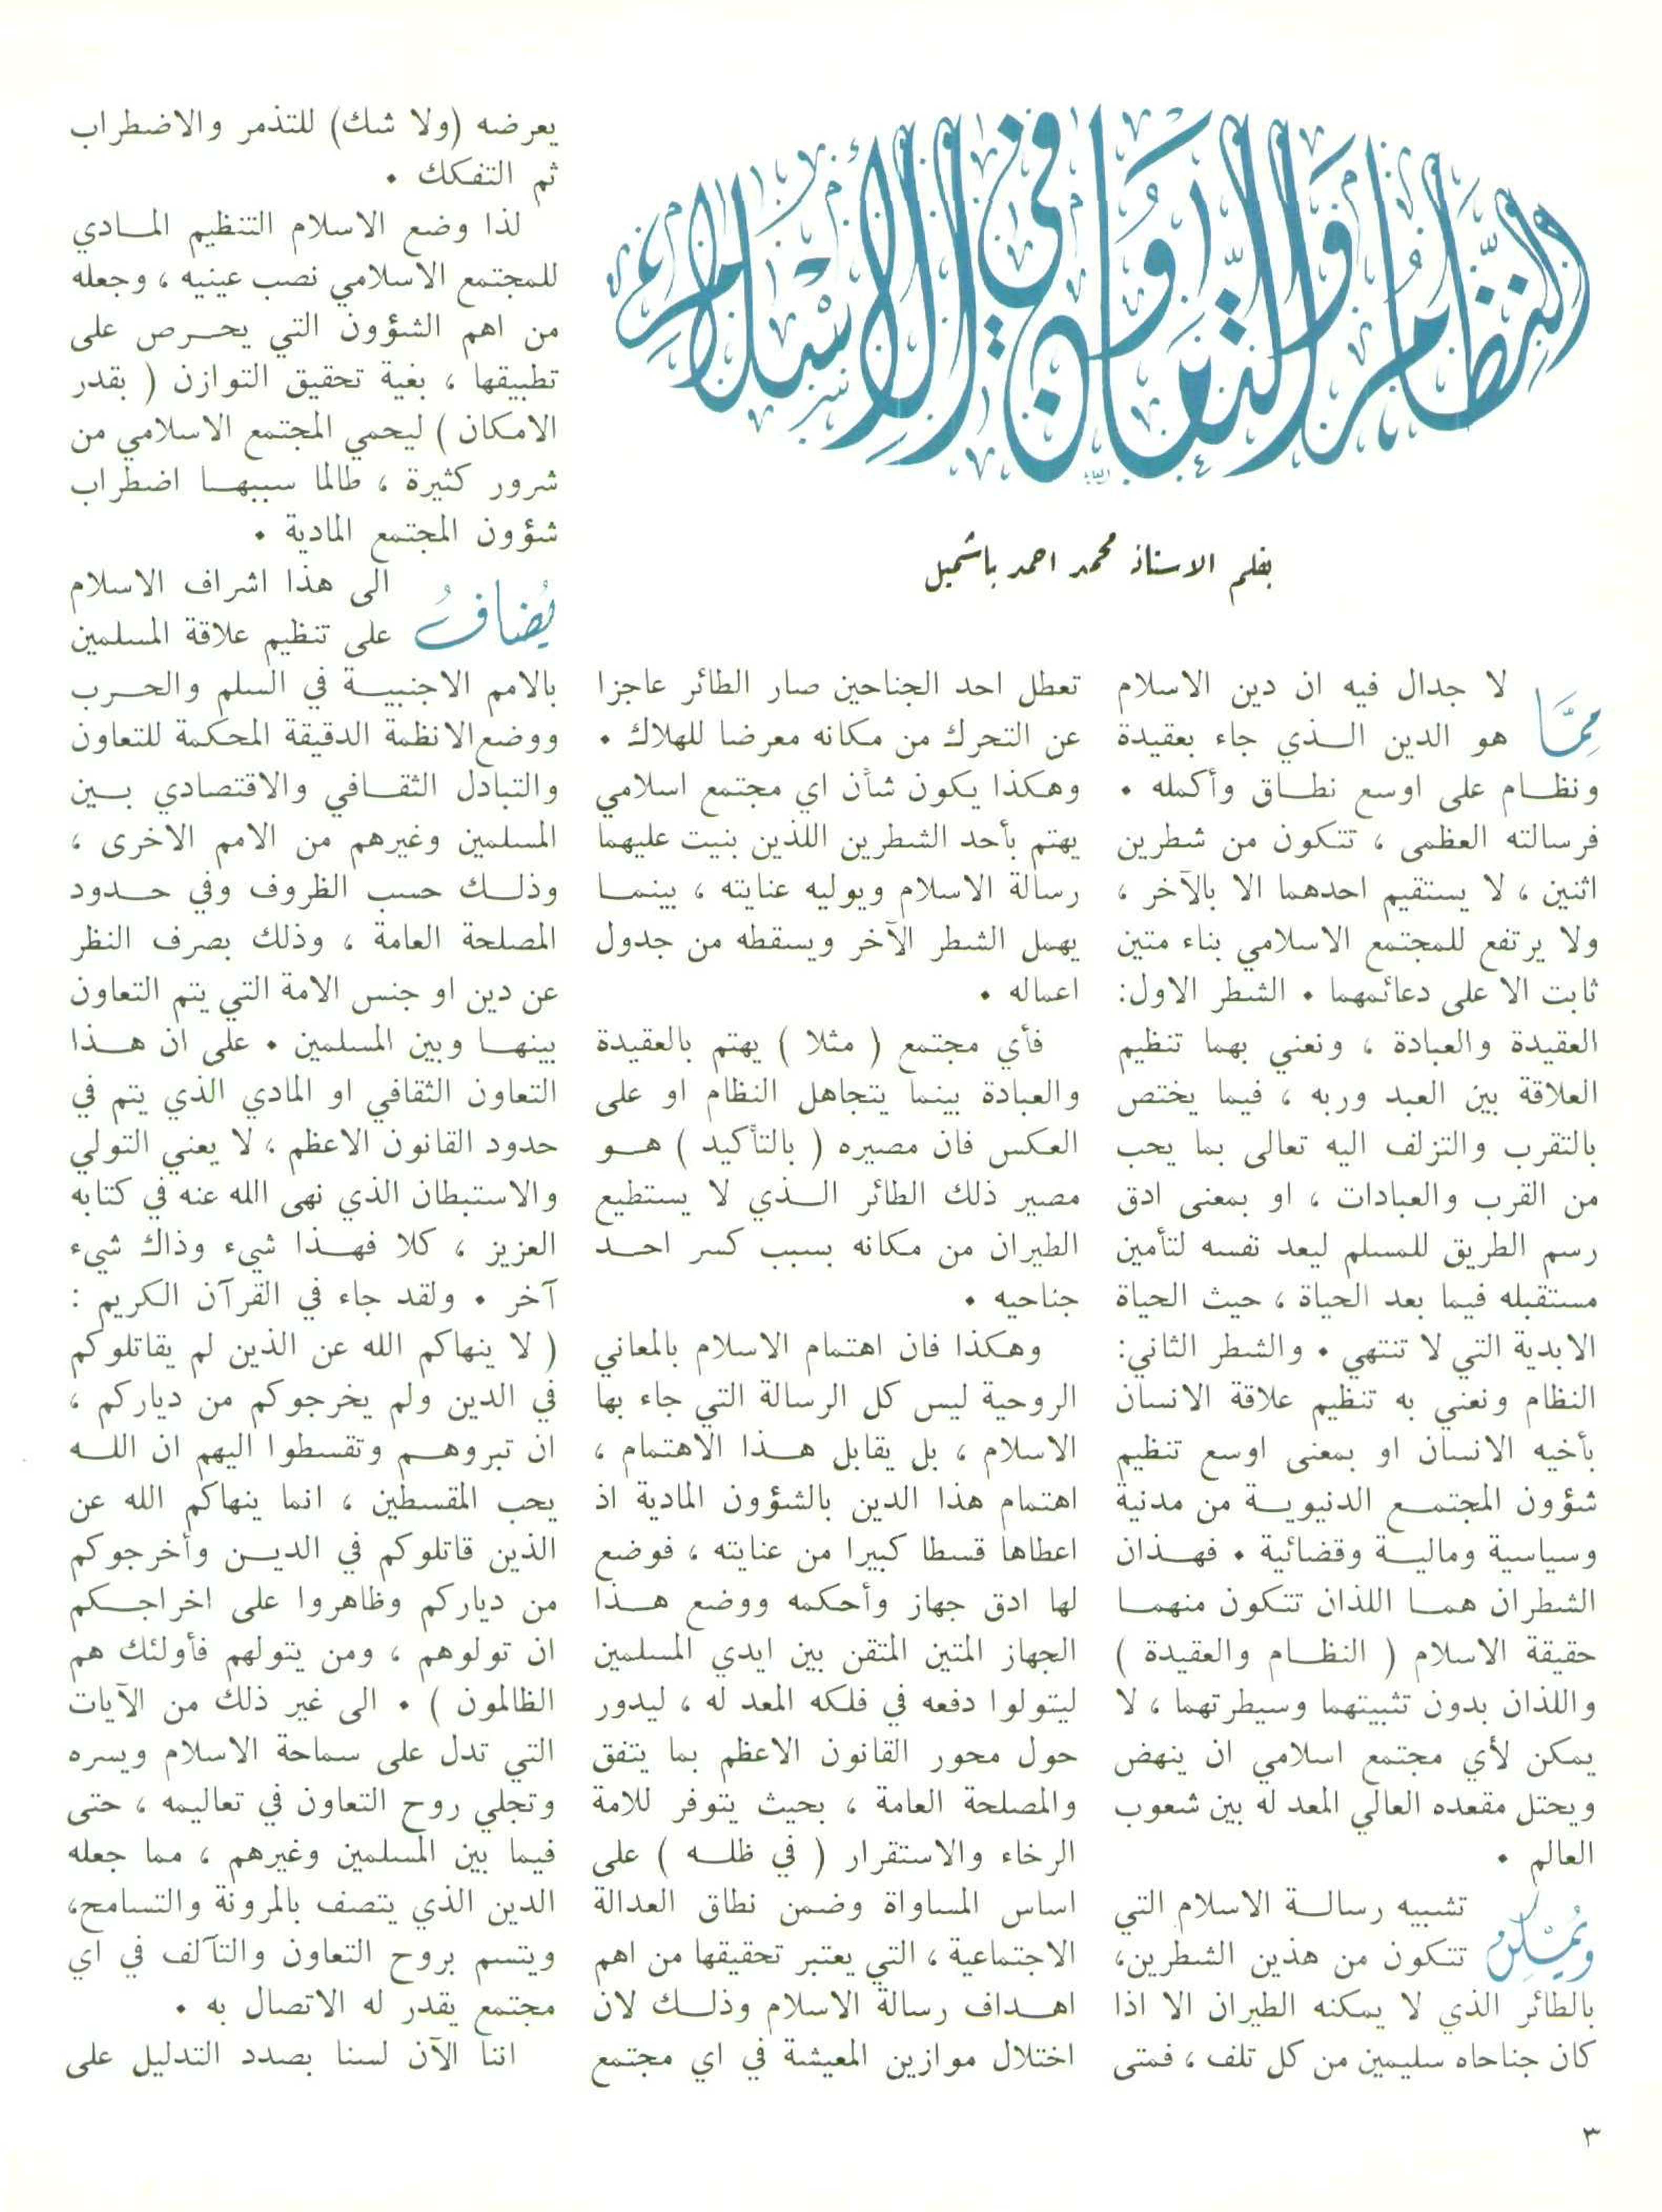 النظام والتعاون في الاسلام
بقلم الاستاذ محمد احمد باشميل
مِمَّا لا جدال فيه ان دين الاسلام
هو الدين الـذي جاء بعقيدة
ونظـام على اوسع نطـاق وأكمله .
فرسالته العظمى ، تتكون من شطرين
اثنين ، لا يستقيم احدهما الا بالآخر ،
ولا يرتفع للمجتمع الاسلامي بناء متين
ثابت الا على دعائمهما . الشطر الاول:
العقيدة والعبادة ، ونعني بهما تنظيم
العلاقة بين العبد وربه ، فيما يختص
بالتقرب والتزلف اليه تعالى بما يحب
من القرب والعبادات ، او بمعنى ادق
رسم الطريق للمسلم ليعد نفسه لتأمين
مستقبله فيما بعد الحياة ، حيث الحياة
الابدية التي لا تنتهي . والشطر الثاني:
النظام ونعني به تنظيم علاقة الانسان
بأخيه الانسان او بمعنى اوسع تنظيم
شؤون المجتمـع الدنيويـة من مدنية
وسياسية وماليـة وقضائية . فهـذان
الشطران همـا اللذان تتكون منهمـا
حقيقة الاسلام ( النظـام والعقيدة )
واللذان بدون تثبيتهما وسيطرتهما ، لا
يمكن لأي مجتمع اسلامي ان ينهض
ويحتل مقعده العالي المعد له بين شعوب
العالم .
وَيُمْكِنُ تشبيه رسالـة الاسلام التي
تتكون من هذين الشطرين،
بالطائر الذي لا يمكنه الطيران الا اذا
كان جناحاه سليمين من كل تلف ، فمتى
تعطل احد الجناحين صار الطائر عاجزا
عن التحرك من مكانه معرضا للهلاك .
وهكذا يكون شأن اي مجتمع اسلامي
يهتم بأحد الشطرين اللذين بنيت عليهما
رسالة الاسلام ويوليه عنايته ، بينمـا
يهمل الشطر الآخر ويسقطه من جدول
اعماله .
فأي مجتمع ( مثلا ) يهتم بالعقيدة
والعبادة بينما يتجاهل النظام او على
العكس فان مصيره ( بالتأكيد ) هـو
مصير ذلك الطائر الـذي لا يستطيع
الطيران من مكانه بسبب كسر احـد
جناحيه .
وهكذا فان اهتمام الاسلام بالمعاني
الروحية ليس كل الرسالة التي جاء بها
الاسلام ، بل يقابل هـذا الاهتمام ،
اهتمام هذا الدين بالشؤون المادية اذ
اعطاها قسطا كبيرا من عنايته ، فوضع
لها ادق جهاز وأحكمه ووضع هـذا
الجهاز المتين المتقن بين ايدي المسلمين
ليتولوا دفعه في فلكه المعد له ، ليدور
حول محور القانون الاعظم بما يتفق
والمصلحة العامة ، بحيث يتوفر للامة
الرخاء والاستقرار ( في ظلـه ) على
اساس المساواة وضمن نطاق العدالة
الاجتماعية ، التي يعتبر تحقيقها من اهم
اهـداف رسالة الاسلام وذلـك لان
اختلال موازين المعيشة في اي مجتمع
يعرضه (ولا شك) للتذمر والاضطراب
ثم التفكك .
لذا وضع الاسلام التنظيم المـادي
للمجتمع الاسلامي نصب عينيه ، وجعله
من اهم الشؤون التي يحـرص على
تطبيقها ، بغية تحقيق التوازن ( بقدر
الامكان ) ليحمي المجتمع الاسلامي من
شرور كثيرة ، طالما سببهـا اضطراب
شؤون المجتمع المادية .
يُضَافُ الى هذا اشراف الاسلام
على تنظيم علاقة المسلمين
بالامم الاجنبيـة في السلم والحـرب
ووضع الانظمة الدقيقة المحكمة للتعاون
والتبادل الثقـافي والاقتصادي بـين
المسلمين وغيرهم من الامم الاخرى ،
وذلـك حسب الظروف وفي حـدود
المصلحة العامة ، وذلك بصرف النظر
عن دين او جنس الامة التي يتم التعاون
بينهـا وبين المسلمين . على ان هـذا
التعاون الثقافي او المادي الذي يتم في
حدود القانون الاعظم ، لا يعني التولي
والاستبطان الذي نهى الله عنه في كتابه
العزيز ، كلا فهـذا شيء وذاك شيء
آخر . ولقد جاء في القرآن الكريم :
( لا ينهاكم الله عن الذين لم يقاتلوكم
في الدين ولم يخرجوكم من دياركم ،
ان تبروهـم وتقسطوا اليهم ان اللـه
يحب المقسطين ، انما ينهاكم الله عن
الذين قاتلوكم في الديـن وأخرجوكم
من دياركم وظاهروا على اخراجـكم
ان تولوهم ، ومن يتولهم فأولئك هم
الظالمون ) . الى غير ذلك من الآيات
التي تدل على سماحة الاسلام ويسره
وتجلي روح التعاون في تعاليمه ، حتى
فيما بين المسلمين وغيرهم ، مما جعله
الدين الذي يتصف بالمرونة والتسامح،
ويتسم بروح التعاون والتآلف في اي
مجتمع يقدر له الاتصال به .
اننا الآن لسنا بصدد التدليل على
٣